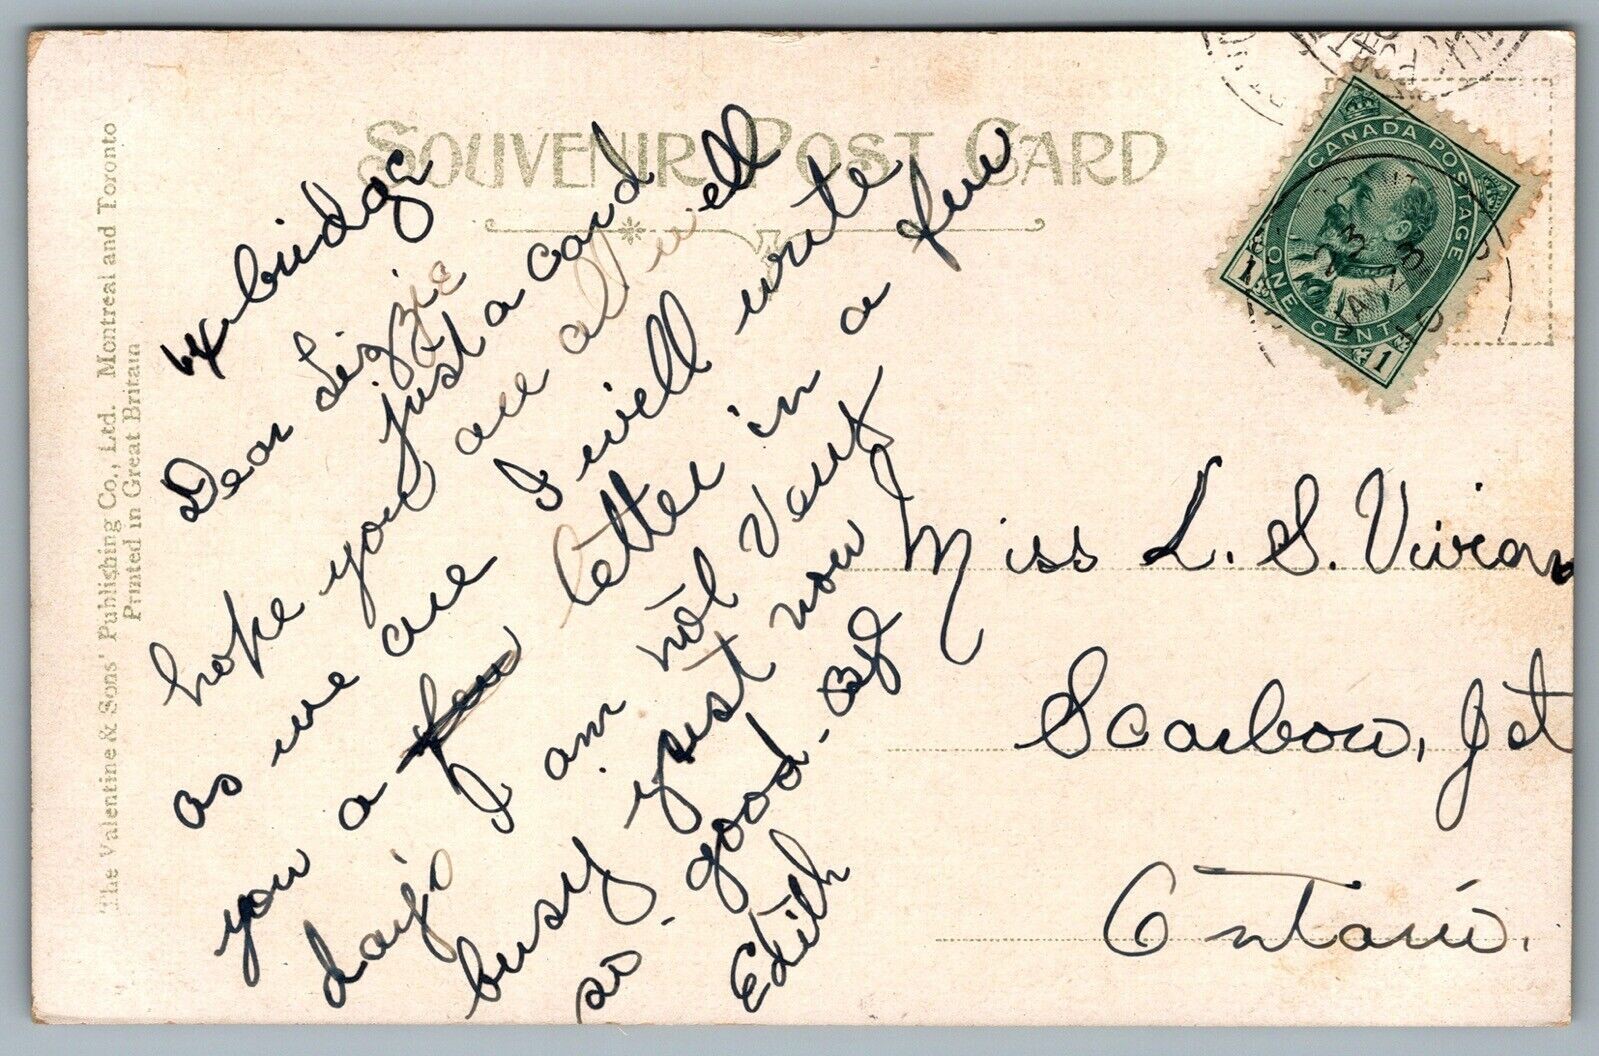 SOUVENIR POST CARD
The Valentine & Sons' Publishing Co., Ltd. Montreal and Toronto
Printed in Great Britain
CANADA POSTAGE
ONE CENT
1 1
JAN 23
Uxbridge
Dear Lizzie
just a card
hope you are all well
as we are I will write
you a few letter in a few
days I am not very
busy just now
so - good - by
Edith
Miss L. S. Vivian
Scarboro, Jct
Ontario.